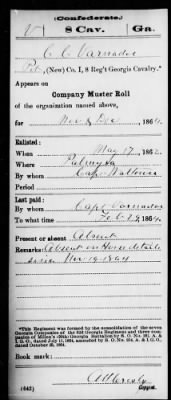 (Confederate.)
V 8 Cav. Ga.
C. C. Varnadoe
Pvt., (New) Co. I, 8 Reg't Georgia Cavalry.*
Appears on
Company Muster Roll
of the organization named above,
for Nov & Dec, 1864.
Enlisted:
When May 17, 1862.
Where Palmyra
By whom Capt
Period
Last paid:
By whom Capt Varnadoe
To what time Feb. 29, 1864.
Present or absent Absent
Remarks: Absent on Horse detail
since Nov 19 1864
*This Regiment was formed by the consolidation of the seven
Georgia Companies of the 62d Georgia Regiment and three com-
panies of
I. G. O., dated July 11, 1864, amended by S. O. No. 254 A. & I. G. O.,
dated October 26, 1864.
Book mark:
(642)
Copyist.